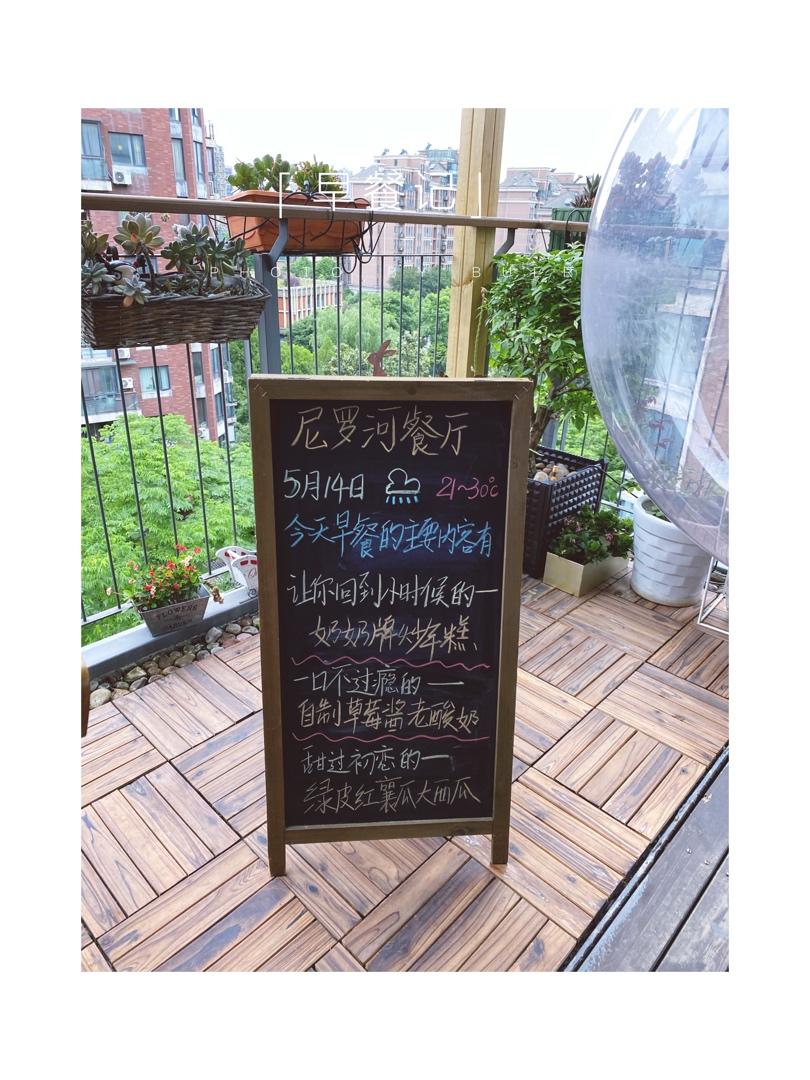 「早餐记」
PHOTO BUIB
尼罗河餐厅
5月14日 21~30℃
今天早餐的主要内容有
让你回到小时候的一
奶奶牌炒年糕
一口不过瘾的一
自制草莓酱老酸奶
甜过初恋的一
绿皮红襄瓜大西瓜
FLOWERS
GARDEN